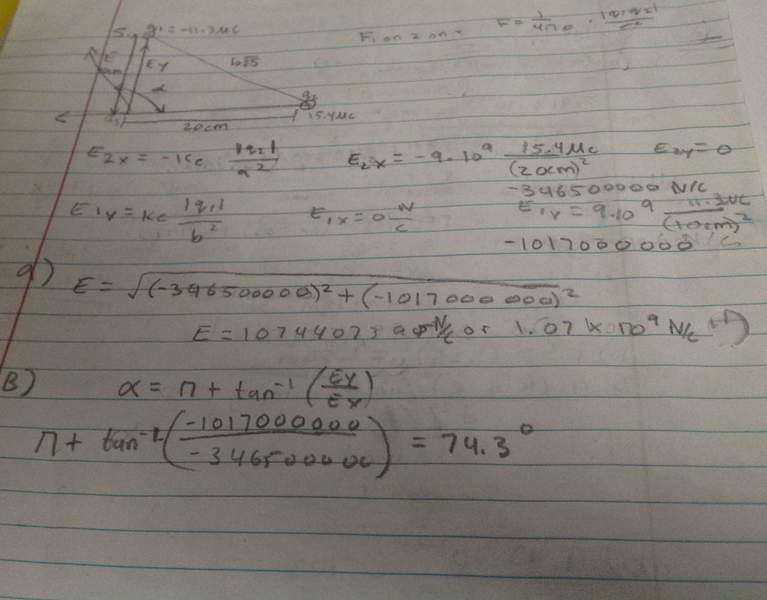 q₁ = -11.3μc
F₁ on 2 on
F = 1/4π · |q₁q₂|
Ey
α
15.4μc
20cm
E₂ₓ = -Kc |q₂|/a²   E₂ₓ = -9·10⁹ 15.4μc/(20cm)²   E₂y = 0
-346500000 N/C
E₁y = Kc |q₁|/b²   E₁ₓ = 0 N/C   E₁y = 9·10⁹ 11.3μc/(10cm)²
-1017000000 N/C
a) E = √(-346500000)² + (-1017000000)²
E = N/C or 1.07 x 10⁹ N/C
B) α = π + tan⁻¹ (Ey/Ex)
π + tan⁻¹ (-1017000000/-346500000) = 74.3°